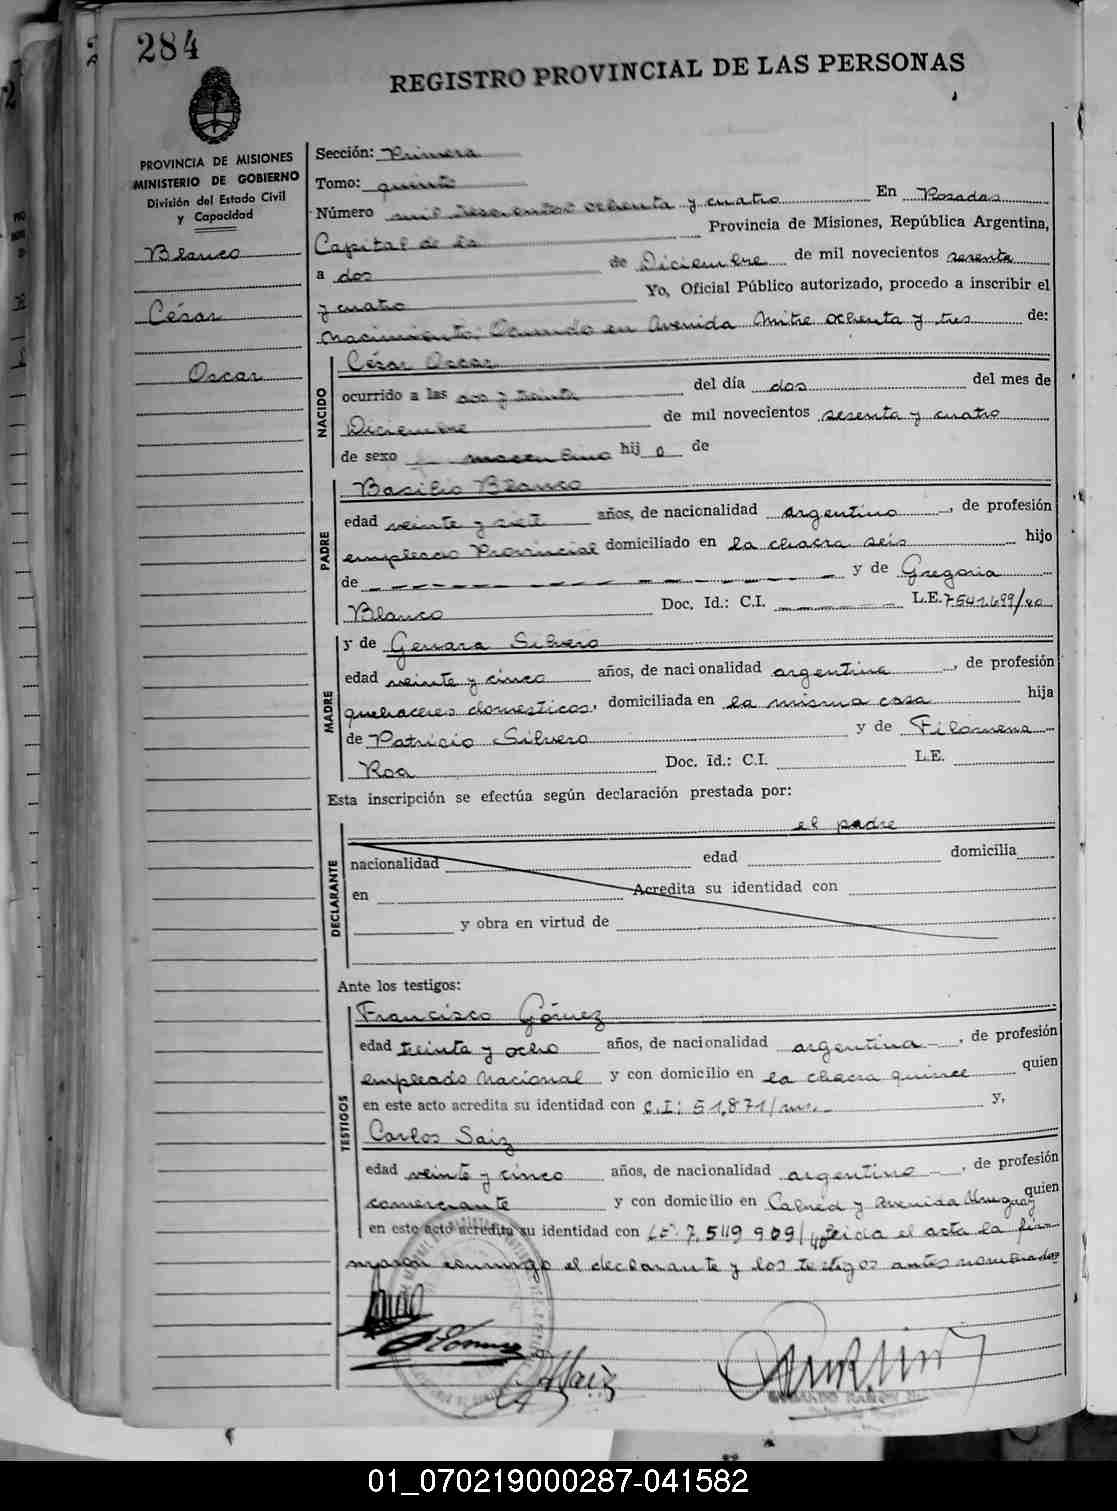 284
REGISTRO PROVINCIAL DE LAS PERSONAS
PROVINCIA DE MISIONES
MINISTERIO DE GOBIERNO
División del Estado Civil
y Capacidad
Blanco
César
Oscar
Sección: Primera
Tomo: quinto
Número mil doscientos ochenta y cuatro En Posadas
Capital de la Provincia de Misiones, República Argentina,
a dos de Diciembre de mil novecientos sesenta
y cuatro Yo, Oficial Público autorizado, procedo a inscribir el
Nacimiento; Ocurrido en Avenida Mitre ochenta y tres de:
NACIDO
César Oscar
ocurrido a las dos y treinta del día dos del mes de
Diciembre de mil novecientos sesenta y cuatro
de sexo masculino hij o de
PADRE
Basilio Blanco
edad veinte y siete años, de nacionalidad argentino, de profesión
empleado Provincial domiciliado en la chacra seis hijo
de y de Gregoria
Blanco Doc. Id.: C.I. L.E. 7541699/40
MADRE
y de Genara Silvero
edad veinte y cinco años, de nacionalidad argentina, de profesión
quehaceres domesticos, domiciliada en la misma casa hija
de Patricio Silvero y de Filomena
Roa Doc. Id.: C.I. L.E.
Esta inscripción se efectúa según declaración prestada por:
DECLARANTE
el padre
nacionalidad edad domicilia
en Acredita su identidad con
y obra en virtud de
Ante los testigos:
TESTIGOS
Francisco Gómez
edad treinta y ocho años, de nacionalidad argentina, de profesión
empleado Nacional y con domicilio en la chacra quince quien
en este acto acredita su identidad con C.I: 51,871/ y,
Carlos Saiz
edad veinte y cinco años, de nacionalidad argentino, de profesión
comerciante y con domicilio en Cabred y Avenida Uruguay quien
en este acto acredita su identidad con LE. 7,549 909/ leida el acta la fir
maron conmigo el declarante y los testigos antes nombrados
01_070219000287-041582